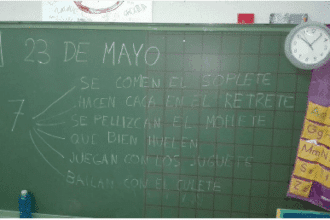 23 DE MAYO
SE COMEN EL SOPLETE
HACEN CACA EN EL RETRETE
7
SE PELLIZCAN EL MOFLETE
QUE BIEN HUELEN
JUEGAN CON LOS JUGUETE
BAILAN CON EL CULETE
Ag